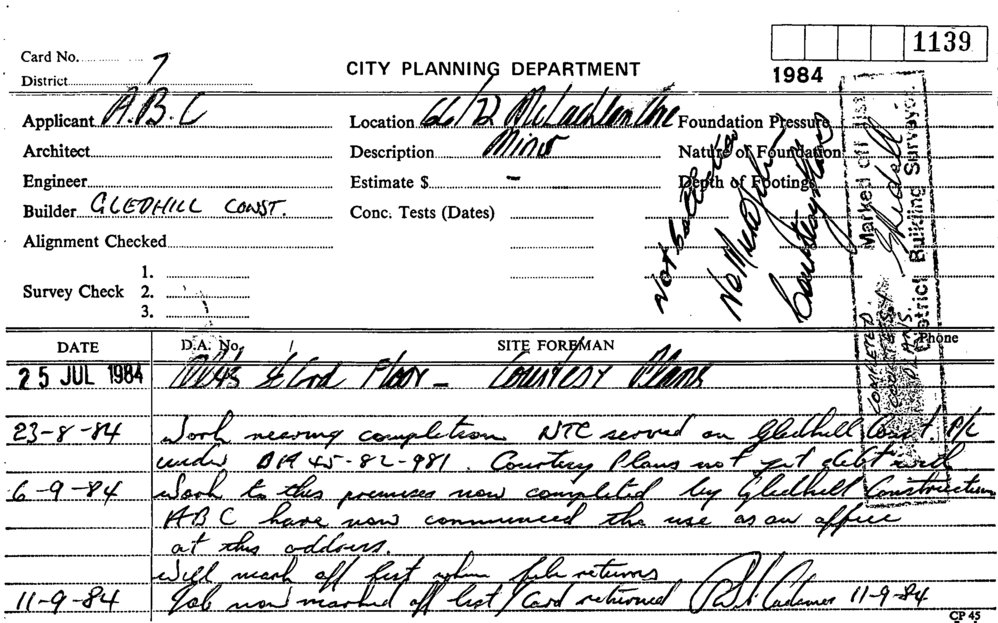 1139
Card No. 7
CITY PLANNING DEPARTMENT
1984
District
Applicant A.B.C
Location 66/72 McLachlan Ave
Foundation Pressure
Architect
Description Minor
Nature of Foundation
Engineer
Estimate $ -
Depth of Footing
Builder GLEDHILL CONST.
Conc. Tests (Dates)
Alignment Checked
Survey Check
1.
2.
3.
Marked Off List
District Building Surveyor
COMPLETED
COURTESY
PLANS.
DATE
D.A. No.
SITE FOREMAN
Phone
25 JUL 1984
Floor - Courtesy Plans
23-8-84 Work nearing completion NTC served on Gledhill Const. P/L
under DA 45-82-981. Courtesy Plans not yet dealt with
6-9-84 Work to this premises now completed by Gledhill Construction
ABC have now commenced the use as an office
at this address.
Will mark off list when file returns
11-9-84 Job now marked off list / Card returned 11-9-84
CP 45